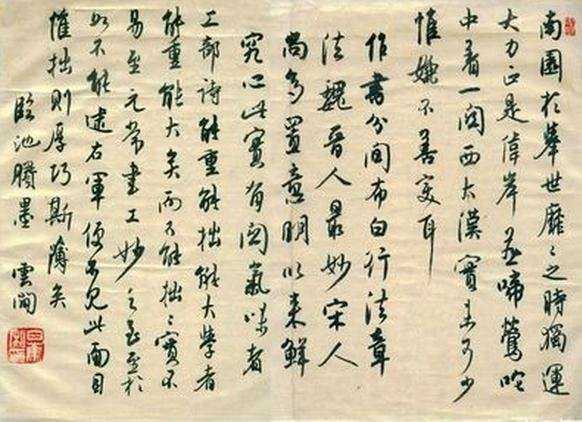 南園於舉世靡々之時獨運
大力正是偉岸燕啼鶯咤
中著一関西大漢實未可少
惟嫌不善變耳
作書分間布白行法章
法魏晉人最妙宋人
尚多置意明以來鮮
究心此實有関氣味者
工部詩能重能拙能大學者
能重能大矣而不能拙々實不
易至元常書工妙之至至於
如不能述右軍便不見此面目
惟拙則厚巧斯薄矣
臨池賸墨 雲閒